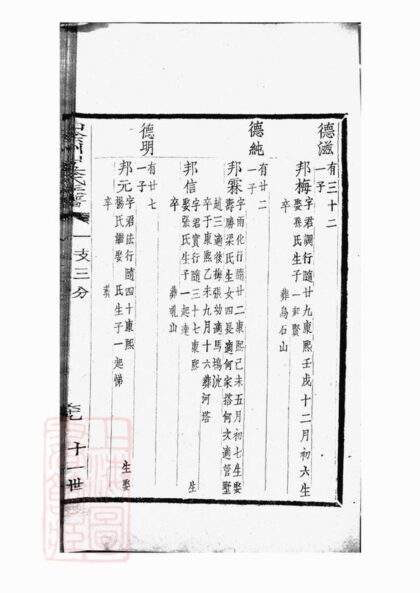 德滋
有三十二
一子
邦梅
字君調行隨廿九康熙壬戌十二月初六生
娶孫氏生子一起賢
卒 葬烏石山
德純
有廿二
一子
邦霖
字雨化行隨廿二康熙己未五月初七生娶
壽勝梁氏生女四長適何家塔何次適管墅
趙三適後梅張幼適馬塢沈
卒于康熙乙未九月十六葬河塔
邦信
字君實行隨三十七康熙 生
娶張氏生子一起
卒 葬吼山
德明
有廿七
一子
邦元
字君法行隨四十康熙 生娶
楊氏繼娶 氏生子一起悌
卒 葬
一支三分
十一世